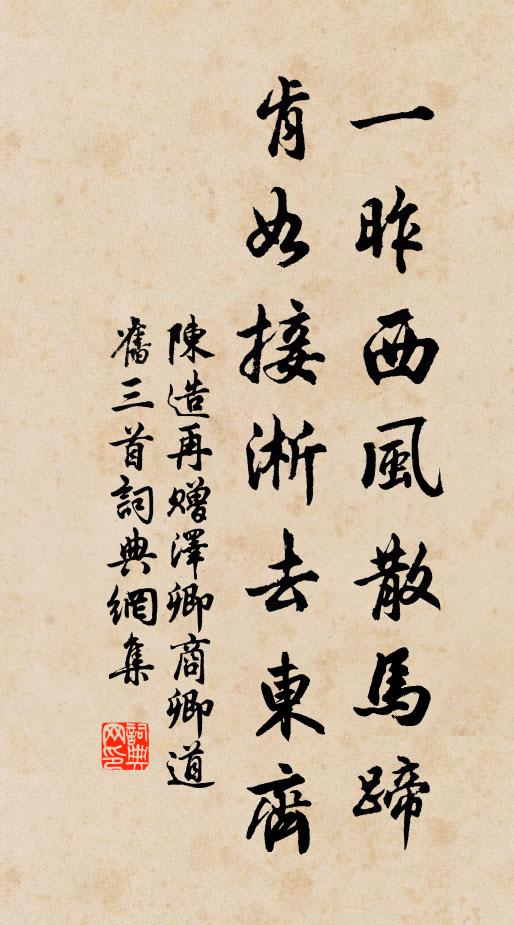 一昨西風散馬蹄
肯如接淅去東齊
陳造再赠澤卿商卿道
舊三首詞典網集
詞典
网印